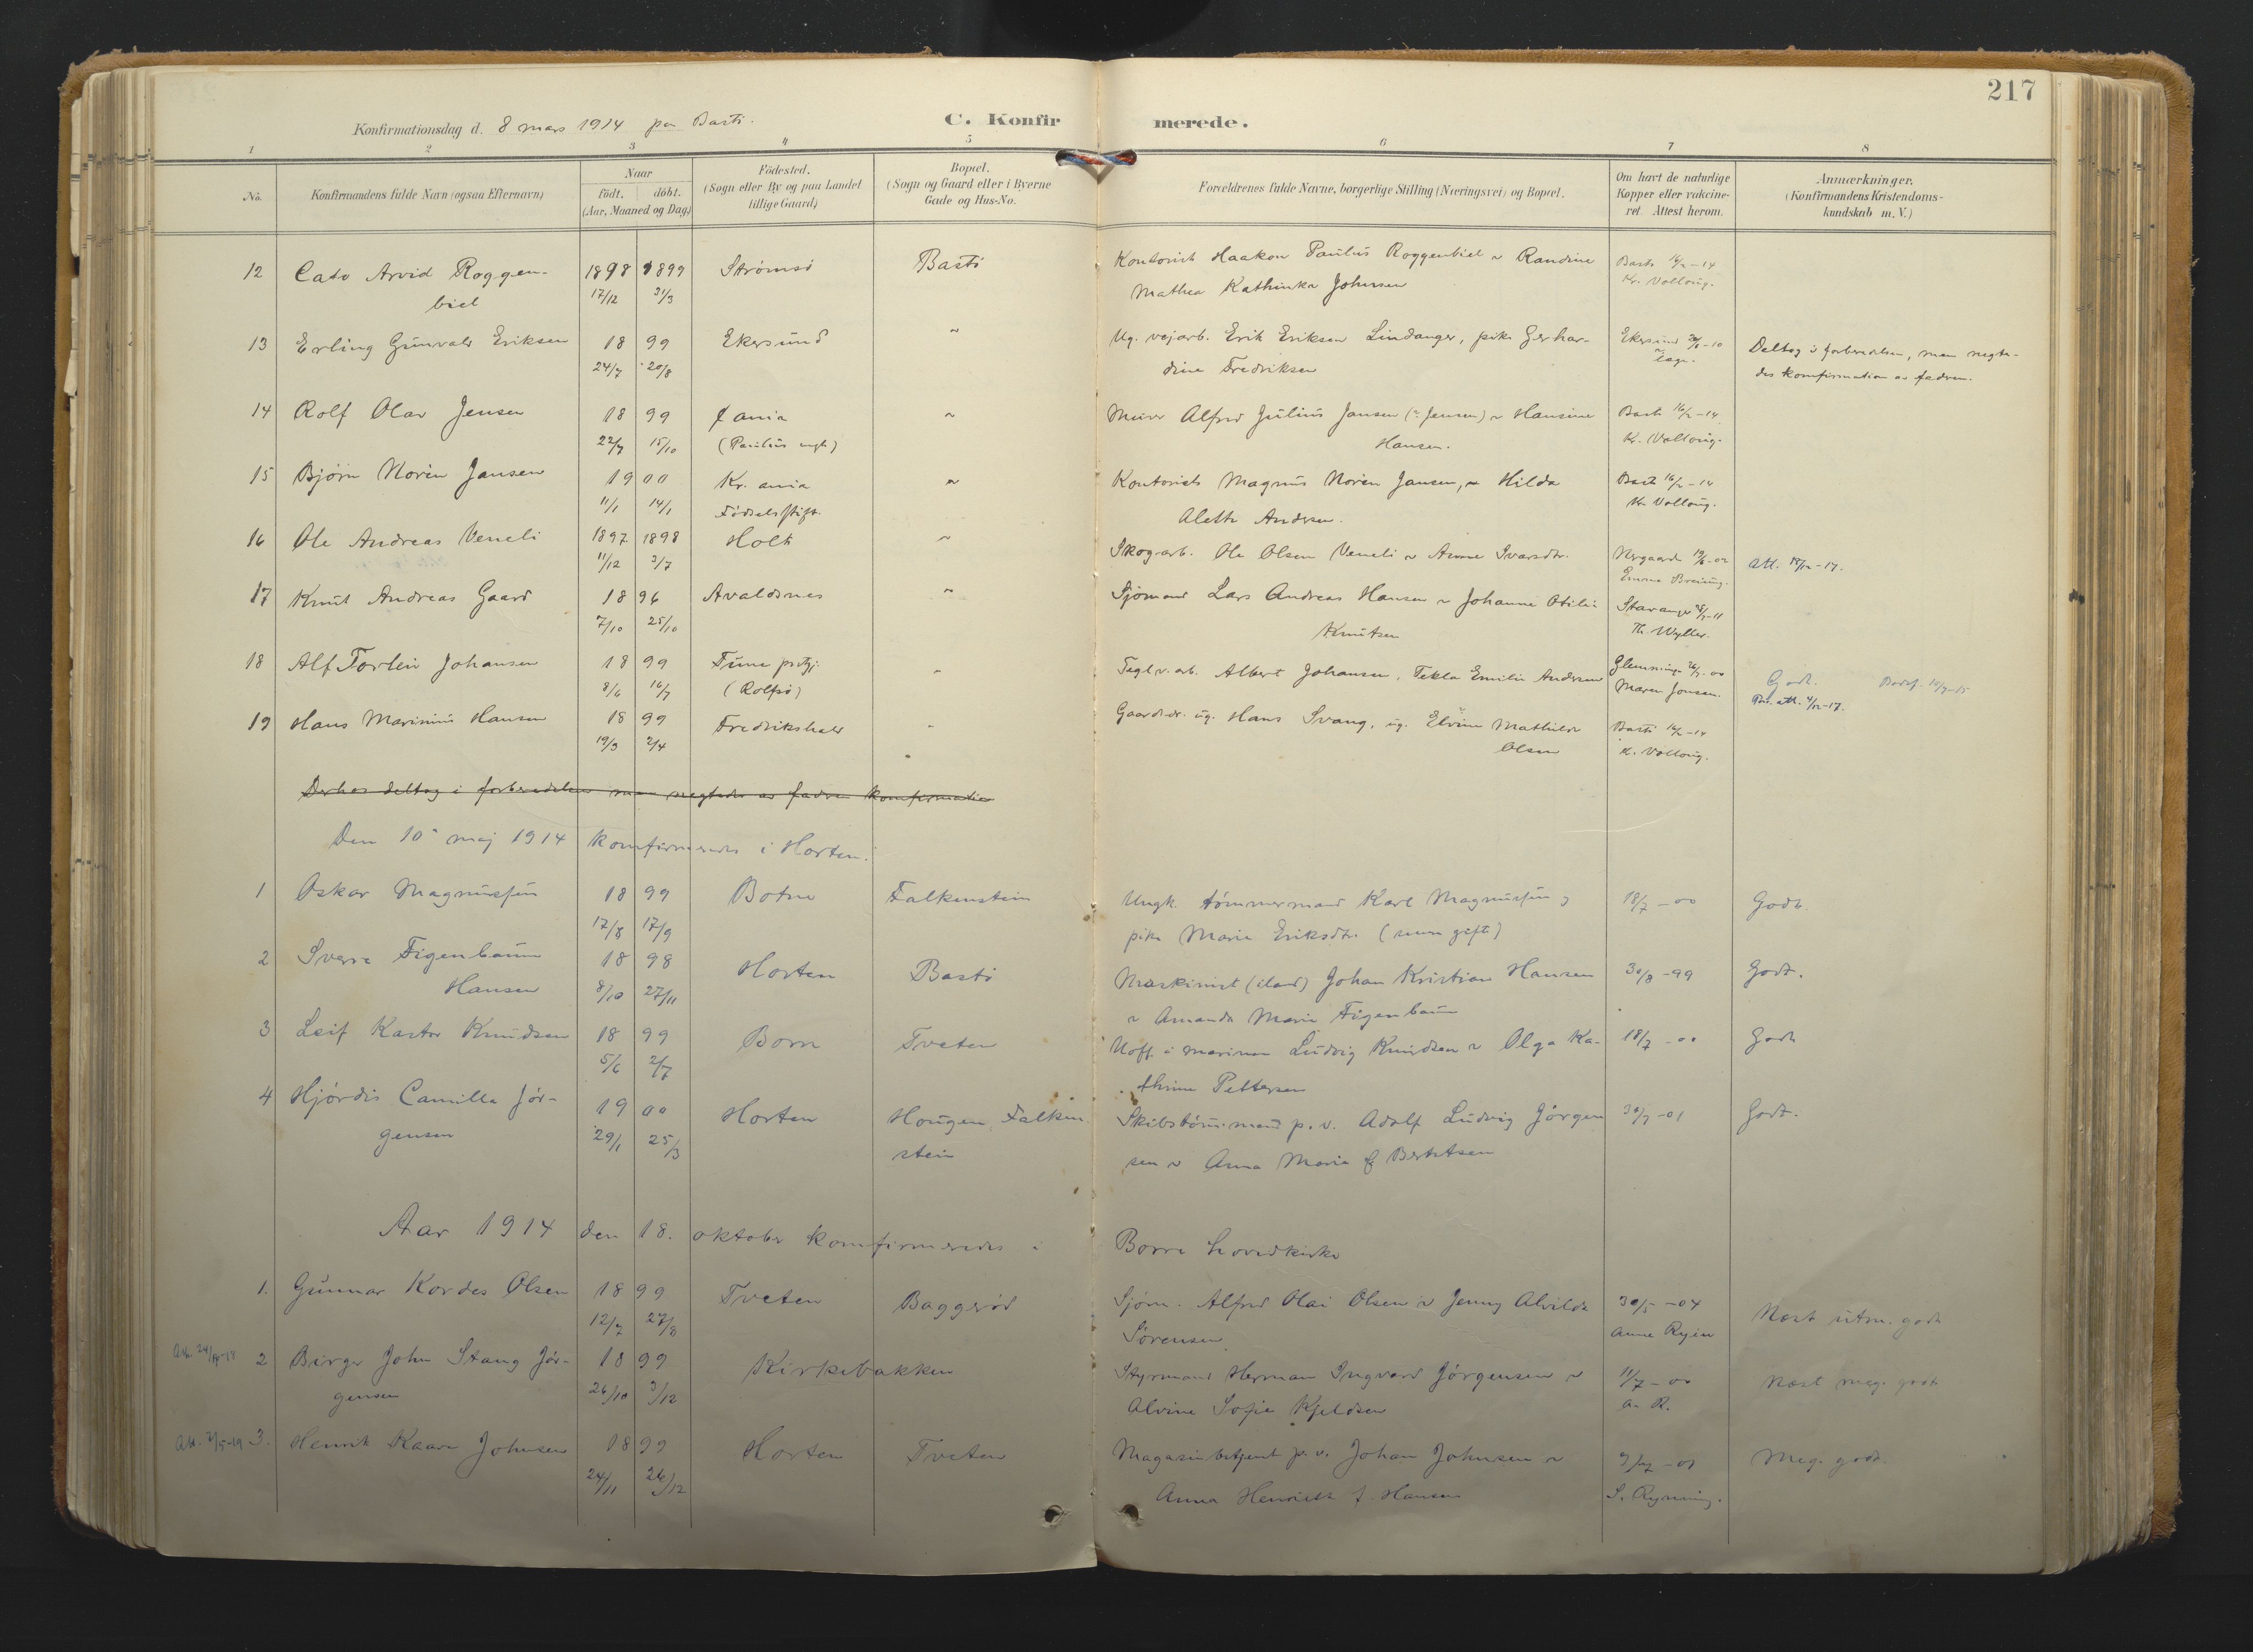 217
Konfirmationsdag d. 8 mars 1914 paa Bastö.
C. Konfirmerede.
1 2 3 4 5 6 7 8
No.
Konfirmandens fulde Navn (ogsaa Efternavn)
Naar
födt. döbt.
(Aar, Maaned og Dag)
Födested.
(Sogn eller By og paa Landet
tillige Gaard)
Bopæl.
(Sogn og Gaard eller i Byerne
Gade og Hus-No.
Forældrenes fulde Navne, borgerlige Stilling (Næringsvei) og Bopæl.
Om havt de naturlige
Kopper eller vakcine-
ret Attest herom.
Anmærkninger.
(Konfirmandens Kristendoms-
kundskab m. V.)
12 Cato Arvid Roggen- 1898 1899 Strømsö Bastö Kontorist Haakon Paulus Roggenbiel ~ Randine Bastö 16/2-14
biel 17/12 31/3 Mathea Kathinka Johnsen Kr. Vollaug.
13 Erling Gunvald Eriksen 18 99 Ekersund ~ Ug. vejarb. Erik Eriksen Lindanger, pike Gerhar- Ekersund
24/7 20/8 dine Fredriksen Deltog i forberedelsen, men negte-
des konfirmation av fadren.
14 Rolf Olav Jensen 18 99 ania ~ Murer Alfred Julius Jansen (? Jensen) ~ Hansine Bastö 16/2-14
22/7 15/10 (Paulus mgh) Hansen. Kr. Vollaug.
15 Bjørn Norèn Jansen 19 00 Kr. ania ~ Kontorist Magnus Norèn Jansen, ~ Hilda Bastö 16/2-14
11/1 14/1 Fødselsstift. Alette Andersen. Kr. Vollaug.
16 Ole Andreas Veneli 1897 1898 Holt ~ Skogarb. Ole Olsen Veneli ~ Anne Ivarsdtr.
11/12 3/7 att.
17 Knut Andreas Gaard 18 96 Avaldsnes ~ Sjömand Lars Andreas Hansen ~ Johanne Otilie Stavanger
7/10 25/10 Knutsen Th. Wyller.
18 Alf Torlein Johansen 18 99 Tune prstgj. Teglv. arb. Albert Johansen, Tekla Emilie Andersen
8/6 16/7 (Rolfsö) Maren Jonsen. Godt.
19 Hans Marinius Hansen 18 99 Fredrikshald Gaardbr. ug. Hans Svang, ug. Elvine Mathilde Bastö 16/2-14
19/3 2/4 Olsen Kr. Vollaug.
deltog i forberedelsen men negtedes av fadren konfirmation
Den 10 maj 1914 konfirmeredes i Horten:
1 Oskar Magnussen 18 99 Botne Falkenstein Ungk. tømmermand Karl Magnussen og 18/7-00 Godt.
17/8 17/9 pike Marie Eriksdtr. (senere gift)
2 Sverre Figenbaum 18 98 Horten Bastö Maskinist (iland) Johan Kristian Hansen 30/8-99 Godt.
Hansen 8/10 27/11 ~ Amanda Marie Figenbaum
3 Leif Kastor Knudsen 18 99 Borre Tveten Uoff. i marinen Ludvig Knudsen ~ Olga Ka- 18/7-00 Godt
5/6 2/7 thrine Pettersen
4 Hjørdis Camilla Jör- 19 00 Horten Hougen, Falken Skibstöm.mand p. v. Adolf Ludvig Jörgen 30/7-01 Godt.
gensen 29/1 25/3 stein sen ~ Anna Marie f. Berntsen
Aar 1914 den 18. oktober konfirmeredes i Borre hovedkirke
1. Gunnar Kordes Olsen 18 99 Tveten Baggeröd Sjöm. Alfred Olai Olsen ~ Jenny Alvilde 30/5-04 Næst utm. godt
12/7 27/8 Sörensen Anne Ryein
2 Birger John Stang Jör- 18 99 Kirkebakken Styrmand Herman Ingvard Jörgensen ~ 11/7-00 Næst meg. godt
gensen 26/10 3/12 Alvine Sofie Kjeldsen a. R.
Att. 2/5-19 3. Henrik Kaare Johnsen 18 99 Horten Tveten Magasinbetjent p. v. Johan Johnsen ~ Meg. godt.
24/11 26/12 Anna Henriette f. Hansen S. Ryning.